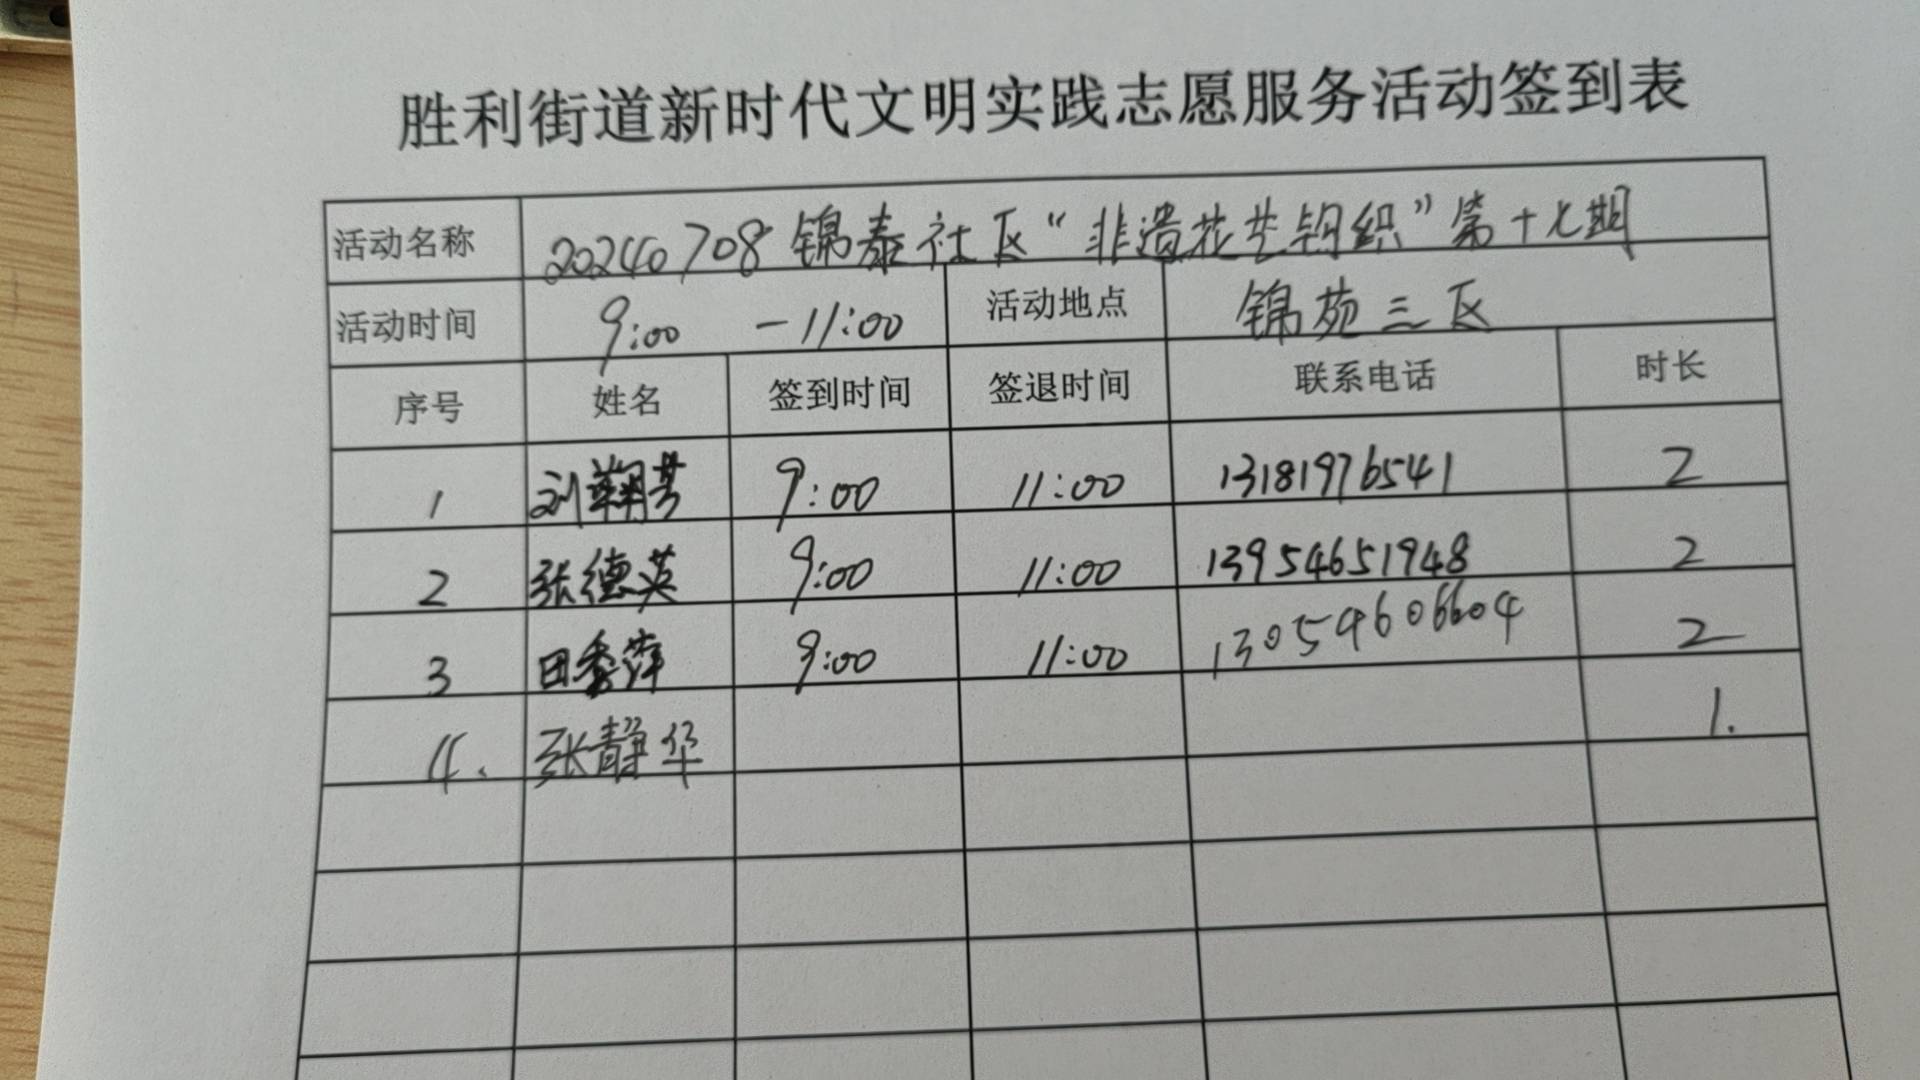 胜利街道新时代文明实践志愿服务活动签到表
活动名称 20240708锦泰社区“非遗花艺钩织”第十七期
活动时间 9:00 -11:00 活动地点 锦苑三区
序号 姓名 签到时间 签退时间 联系电话 时长
1 刘翔芳 9:00 11:00 13181976541 2
2 张德英 9:00 11:00 13954651948 2
3 田秀萍 9:00 11:00 13054606604 2
4. 张静华 1.